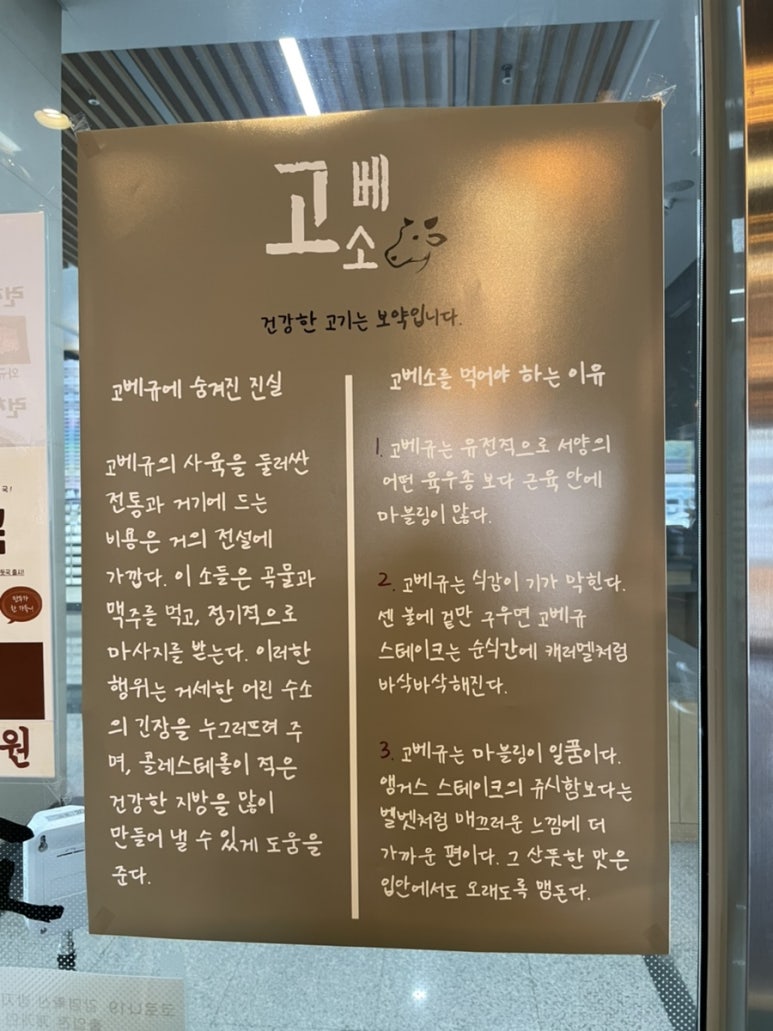 고베소
건강한 고기는 보약입니다.
고베규에 숨겨진 진실
고베규의 사육을 둘러싼
전통과 거기에 드는
비용은 거의 전설에
가깝다. 이 소들은 곡물과
맥주를 먹고, 정기적으로
마사지를 받는다. 이러한
행위는 거세한 어린 수소
의 긴장을 누그러뜨려 주
며, 콜레스테롤이 적은
건강한 지방을 많이
만들어 낼 수 있게 도움을
준다.
고베소를 먹어야 하는 이유
1. 고베규는 유전적으로 서양의
어떤 육우종 보다 근육 안에
마블링이 많다.
2. 고베규는 식감이 기가 막힌다.
센 불에 겉만 구우면 고베규
스테이크는 순식간에 캐러멜처럼
바삭바삭해진다.
3. 고베규는 마블링이 일품이다.
앵거스 스테이크의 쥬시함보다는
벨벳처럼 매끄러운 느낌에 더
가까운 편이다. 그 산뜻한 맛은
입안에서도 오래도록 맴돈다.
원
코로나19 감염확산 방지